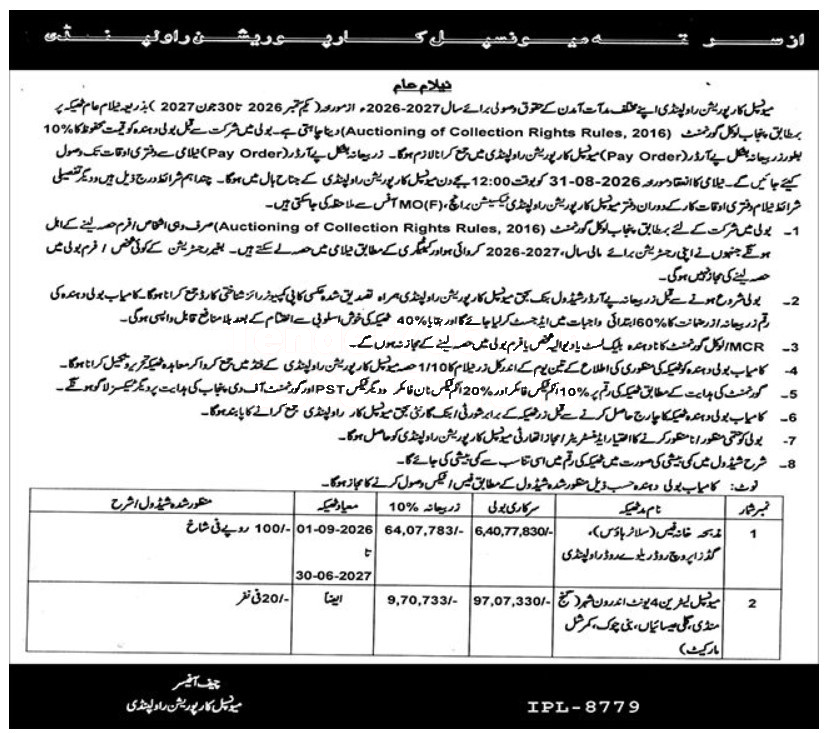 از ســر دفتــر میونسپل کــارپوریشن راولپنــڈی
نیلام عام
میونسپل کارپوریشن راولپنڈی اپنے مختلف مدات آمدن کے حقوق وصولی برائے سال 2027-2026ء از مورخہ (یکم ستمبر 2026 تا 30 جون 2027) بذریعہ نیلام عام ٹھیکہ پر
برمطابق پنجاب لوکل گورنمنٹ (Auctioning of Collection Rights Rules, 2016) دینا چاہتی ہے۔ بولی میں شرکت سے قبل بولی دہندہ کو قیمت محفوظ کا %10
بطور زر بیعانہ بشکل پے آرڈر (Pay Order) میونسپل کارپوریشن راولپنڈی میں جمع کرانا لازم ہوگا۔ زر بیعانہ بشکل پے آرڈر (Pay Order) نیلامی سے دفتری اوقات تک وصول
کیئے جائیں گے۔ نیلامی کا انعقاد مورخہ 31-08-2026 کو بوقت 12:00 بجے دن میونسپل کارپوریشن راولپنڈی کے جناح ہال میں ہوگا۔ چند اہم شرائط درج ذیل ہیں و دیگر تفصیلی
شرائط نیلام دفتری اوقات کار کے دوران دفتر میونسپل کارپوریشن راولپنڈی ٹیکسیشن برانچ، MO(F) آفس سے ملاحظہ کی جا سکتی ہیں۔
1۔ بولی میں شرکت کے لئے برمطابق پنجاب لوکل گورنمنٹ (Auctioning of Collection Rights Rules, 2016) صرف وہی اشخاص / فرم حصہ لینے کے اہل
ہونگے جنہوں نے اپنی رجسٹریشن برائے مالی سال، 2027-2026 کروائی ہو اور کیٹیگری کے مطابق نیلامی میں حصہ لے سکتے ہیں۔ بغیر رجسٹریشن کے کوئی شخص / فرم بولی میں
حصہ لینے کی مجاز نہیں ہوگی۔
2۔ بولی شروع ہونے سے قبل زر بیعانہ پے آرڈر شیڈول بنک بحق میونسپل کارپوریشن راولپنڈی ہمراہ تصدیق شدہ عکسی کاپی کمپیوٹرائزشناختی کارڈ جمع کرانا ہوگا۔ کامیاب بولی دہندہ کی
رقم زر بیعانہ / زر ضمانت کا %60 ابتدائی واجبات میں ایڈجسٹ کر لیا جائے گا اور بقایا %40 ٹھیکہ کی خوش اسلوبی سے اختتام کے بعد بلا منافع قابل واپسی ہوگی۔
3۔ MCR/لوکل گورنمنٹ کا نادہندہ بلیک لسٹ یا دیوالیہ شخص یا فرم بولی میں حصہ لینے کے مجاز نہ ہوں گے۔
4۔ کامیاب بولی دہندہ کو ٹھیکہ کی منظوری کی اطلاع کے تین یوم کے اندر کل زر نیلام کا 1/10 حصہ میونسپل کارپوریشن راولپنڈی کے فنڈ میں جمع کروا کر معاہدہ ٹھیکہ تحریر و تکمیل کرانا ہوگا۔
5۔ گورنمنٹ کی ہدایت کے مطابق ٹھیکہ کی رقم پر %10 انکم ٹیکس فائلر اور %20 انکم ٹیکس نان فائلر و دیگر ٹیکس PST اور گورنمنٹ آف دی پنجاب کی ہدایت پر دیگر ٹیکسز لاگو ہونگے۔
6۔ کامیاب بولی دہندہ ٹھیکہ کا چارج حاصل کرنے سے قبل زر ٹھیکہ کے برابر شورٹی / بنک گارنٹی بحق میونسپل کارپوریشن راولپنڈی جمع کرانے کا پابند ہوگا۔
7۔ بولی کو حتمی منظور / نامنظور کرنے کا اختیار ایڈمنسٹریٹر / مجاز اتھارٹی میونسپل کارپوریشن راولپنڈی کو حاصل ہوگا۔
8۔ شرح شیڈول میں کمی بیشی کی صورت میں ٹھیکہ کی رقم میں اسی تناسب سے کمی بیشی کی جائے گی۔
نوٹ: کامیاب بولی دہندہ حسب ذیل منظور شدہ شیڈول کے مطابق فیس / ٹیکس وصول کرنے کا مجاز ہوگا۔
نمبر شمار نام مد ٹھیکہ سرکاری بولی زر بیعانہ %10 معیاد ٹھیکہ منظور شدہ شیڈول / شرح
1 مذبحہ خانہ فیس (سلاٹر ہاؤس)، 6,40,77,830/- 64,07,783/- 01-09-2026 100/- روپے فی شاخ
گڈز اپروچ روڈ ریلوے روڈ راولپنڈی تا
30-06-2027
2 میونسپل لیٹرین 4 یونٹ اندرون شہر (گنج 97,07,330/- 9,70,733/- ایضاً 20/- فی نفر
منڈی، گلی عیسائیاں، بنی چوک، کمرشل
مارکیٹ)
چیف آفیسر
میونسپل کارپوریشن راولپنڈی
IPL-8779